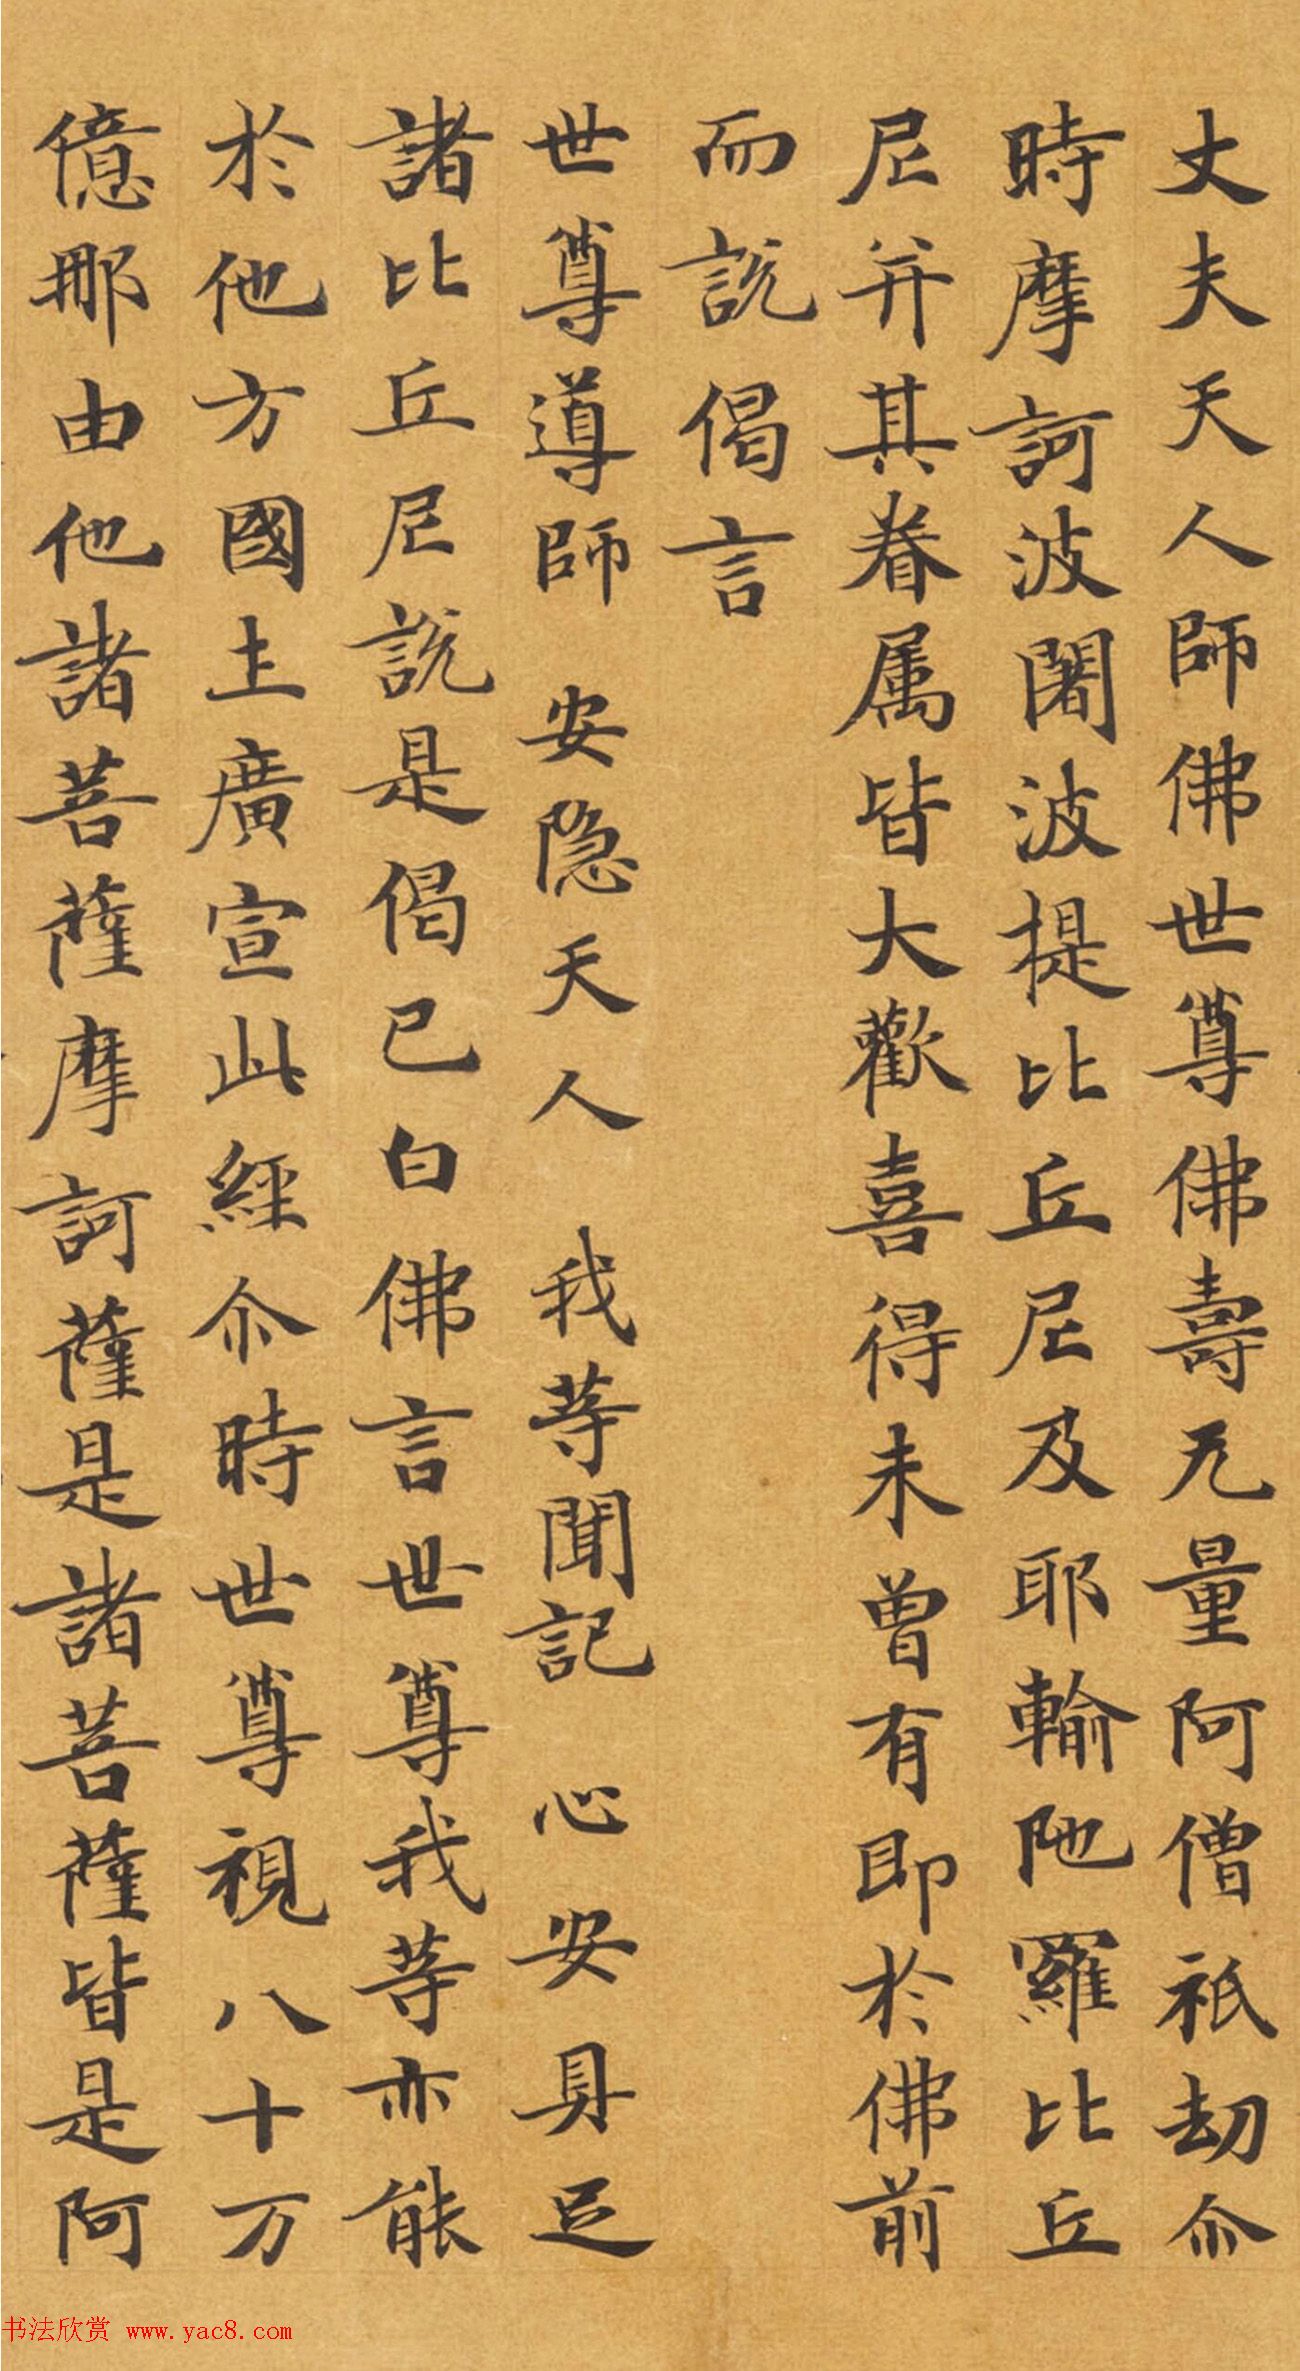 丈夫天人師佛世尊佛壽无量阿僧祇劫尒
時摩訶波闍波提比丘尼及耶輸陁羅比丘
尼并其眷属皆大歡喜得未曾有即於佛前
而説偈言
世尊導師　安隐天人　我等聞記　心安具足
諸比丘尼説是偈已白佛言世尊我等亦能
於他方國土廣宣此經尒時世尊視八十万
億那由他諸菩薩摩訶薩是諸菩薩皆是阿
书法欣赏 www.yac8.com